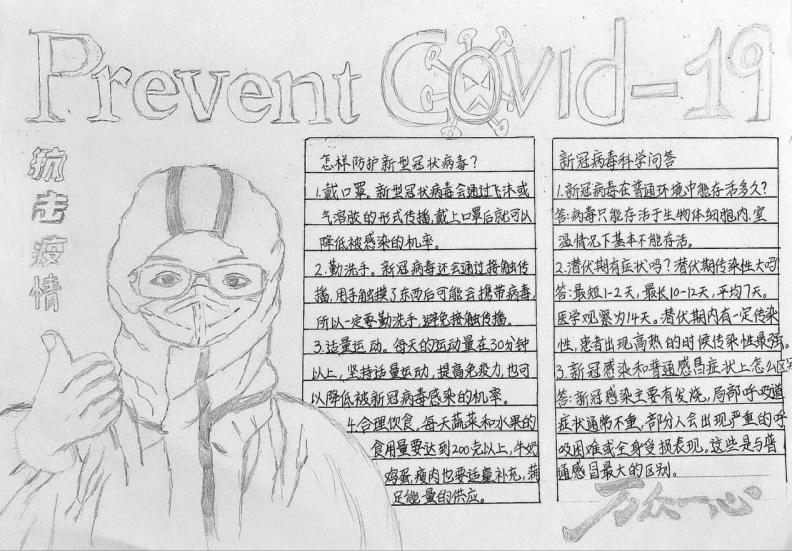 Prevent Covid-19
抗击疫情
怎样防护新型冠状病毒?
1.戴口罩。新型冠状病毒会通过飞沫或
气溶胶的形式传播,戴上口罩后就可以
降低被感染的机率。
2.勤洗手。新冠病毒还会通过接触传
播,用手触摸了东西后可能会携带病毒,
所以一定要勤洗手,避免接触传播。
3.适量运动。每天的运动量在30分钟
以上,坚持适量运动,提高免疫力,也可
以降低被新冠病毒感染的机率。
4.合理饮食。每天蔬菜和水果的
食用量要达到200克以上,牛奶
鸡蛋,瘦肉也要适量补充,满
足能量的供应。
新冠病毒科学问答
1.新冠病毒在普通环境中能存活多久?
答:病毒只能存活于生物体细胞内,室
温情况下基本不能存活。
2.潜伏期有症状吗?潜伏期传染性大吗
答:最短1-2天,最长10-12天,平均7天。
医学观察为14天。潜伏期内有一定传染
性,患者出现高热的时候传染性最强。
3.新冠感染和普通感冒症状上怎么区别
答:新冠感染主要有发烧,局部呼吸道
症状通常不重,部分人会出现严重的呼
吸困难或全身受损表现。这些是与普
通感冒最大的区别。
万众一心